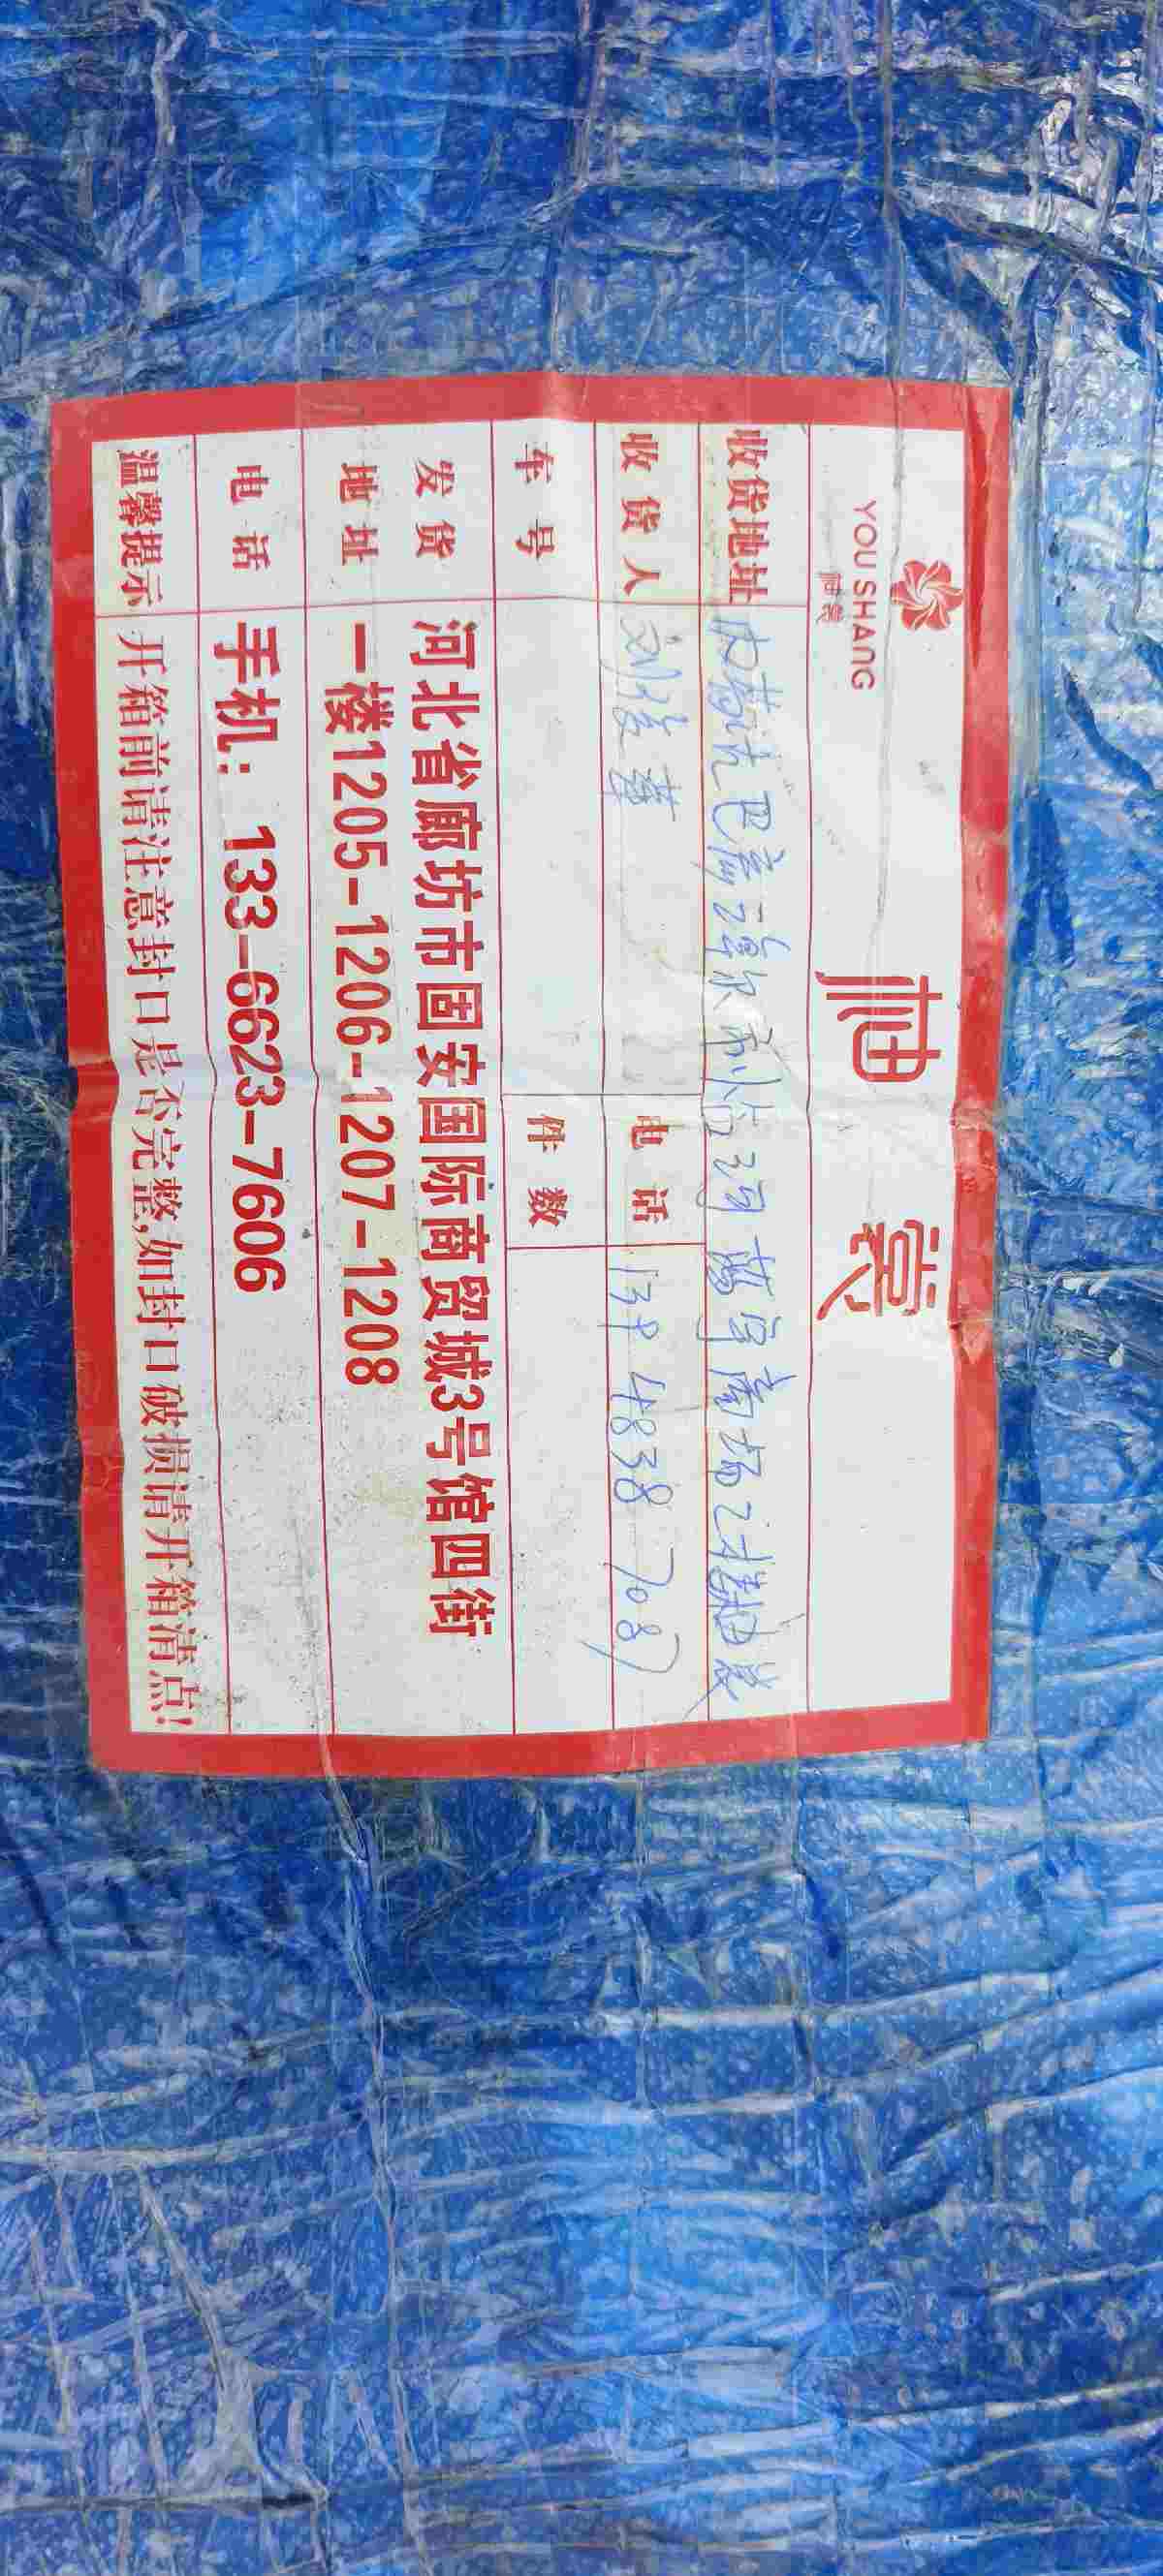 YOU SHANG
柚裳
柚裳
收货地址 内蒙古巴彦淖尔市临河 万孚商场 2楼柚裳
收货人 刘 电话 139 4838 7087
车号 件数
发货地址 河北省廊坊市固安国际商贸城3号馆四街
一楼1205-1206-1207-1208
电话 手机：133-6623-7606
温馨提示 开箱前请注意封口是否完整,如封口破损请开箱清点!